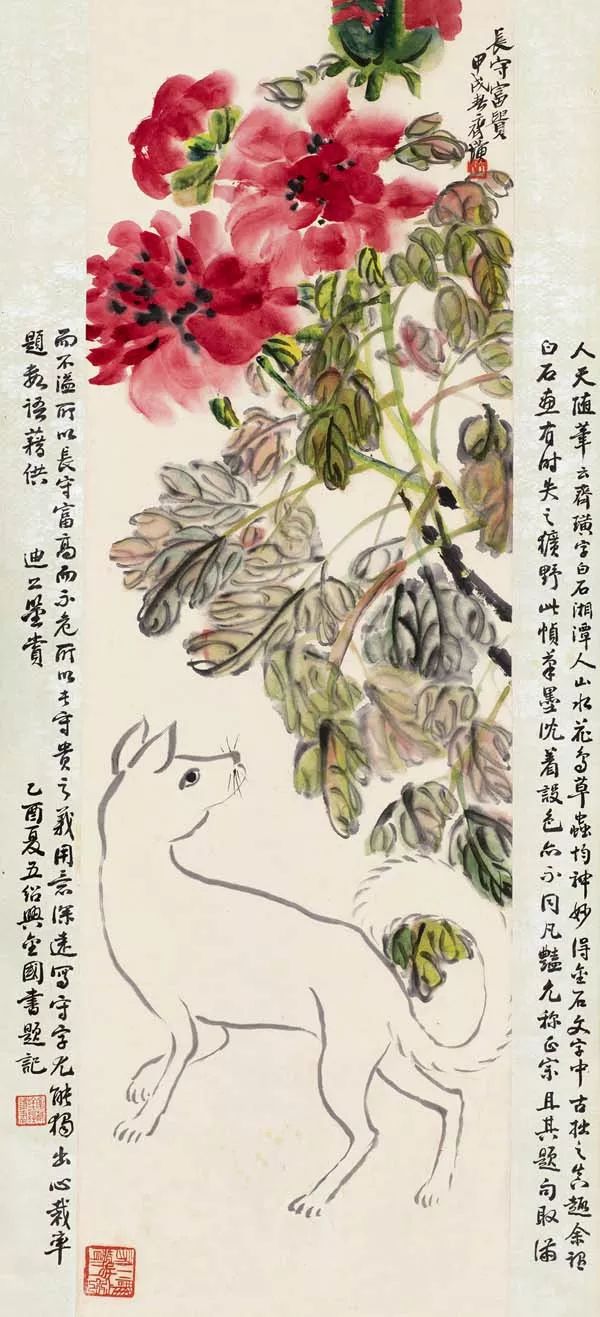 長守富貴
甲戌春齊璜
人天隨筆云齊璜字白石湘潭人山水花鳥草蟲均神妙得金石文字中古拙之真趣余
白石畫有時失之獷野此幀筆墨沈着設色亦不同凡豔允称正宗且其題句取滿
而不溢所以長守富高而不危所以長守貴之義用意深遠寫守字尤能獨出心裁率
題數語藉供 迪公鑒賞 乙酉夏五紹興金國書題記